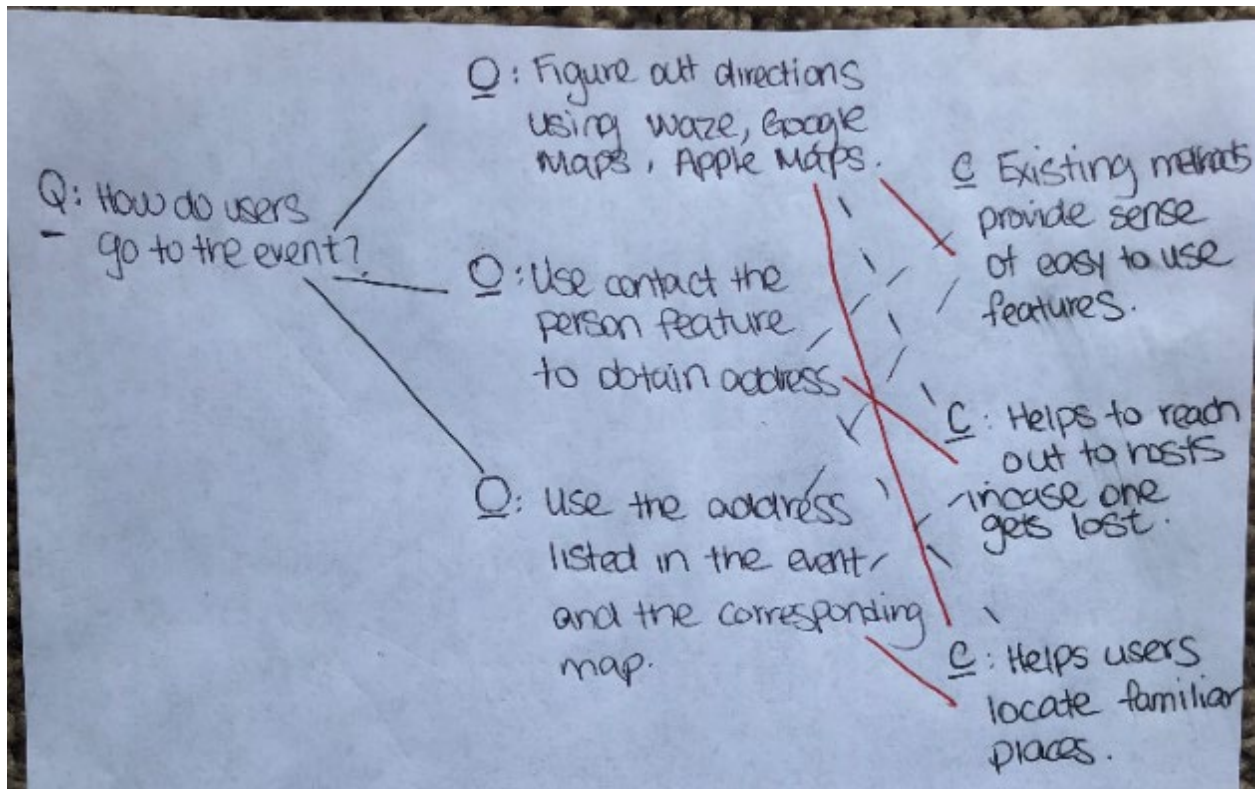 Q: How do users
go to the event?
O: Figure out directions
using waze, Google
Maps, Apple Maps.
O: Use contact the
person feature
to obtain address
O: Use the address
listed in the event
and the corresponding
map.
C Existing methods
provide sense
of easy to use
features.
C: Helps to reach
out to hosts
incase one
gets lost.
C: Helps users
locate familiar
places.